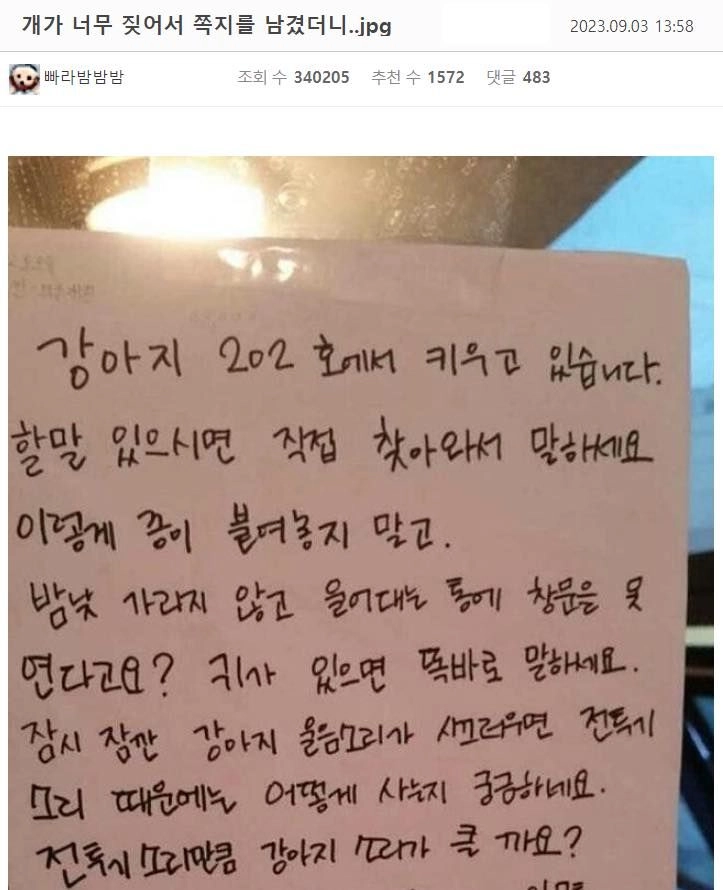 개가 너무 짖어서 쪽지를 남겼더니..jpg
2023.09.03 13:58
빠라밤밤밤
조회 수 340205 추천 수 1572 댓글 483
강아지 202 호에서 키우고 있습니다.
할말 있으시면 직접 찾아와서 말하세요
이렇게 종이 붙여놓지 말고.
밤낮 가리지 않고 울어대는 통에 창문을 못
연다고요? 귀가 있으면 똑바로 말하세요.
잠시 잠깐 강아지 울음소리가 시끄러우면 전투기
소리 때문에는 어떻게 사는지 궁금하네요.
전투기 소리만큼 강아지 소리가 클 까요?